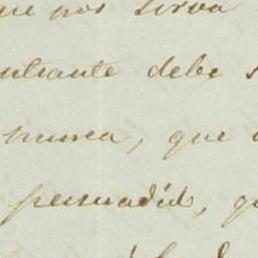 que nos sirva
entrante debe s
nunca, que
persuadid, qu